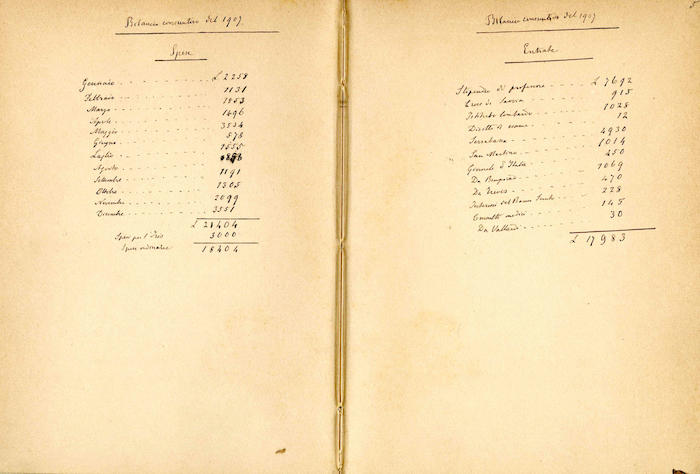 Bilancio consuntivo del 1907
Spese
Gennaio £ 2258
Febbraio 1131
Marzo 1853
Aprile 1496
Maggio 3534
Giugno 578
Luglio 1555
Agosto
Settembre 1191
Ottobre 1305
Novembre 2099
Dicembre 3551
£ 21404
Spese per 3000
Spese ordinarie 18404
5
Bilancio consuntivo del 1907
Entrate
Stipendio di professore £ 7692
di Savoia 915
Istituto lombardo 1028
Diritti d'esame 12
4930
San Martino 1014
Giornale d'Italia 250
Da Bemporad 1069
Da Treves 470
Interessi del Banco Sconto 228
Consulti medici 145
Da Vallardi 30
£ 17983